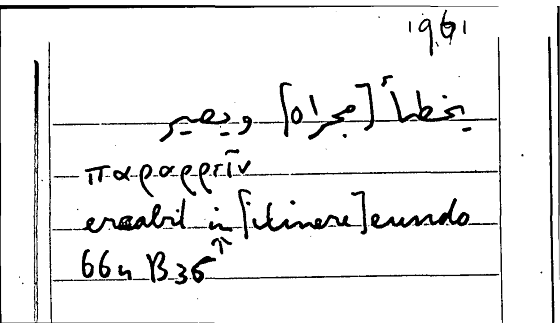 1961
يخطأ [مجراه] ويصير
παραρρεῖν
errabit in [itinere] eundo
664 B36